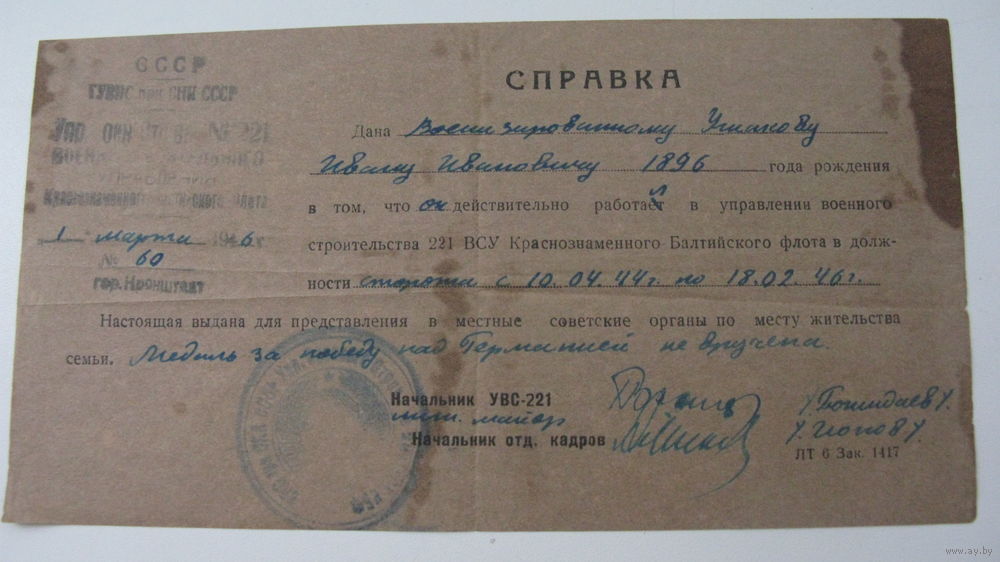 СССР
ГУВПС при СНК СССР
№ 221
Краснознаменного Балтийского флота
1 марта 1946 г
№ 60
гор. Кронштадт
СПРАВКА
Дана Военизированному Ушакову
Ивану Ивановичу 1896 года рождения
в том, что он действительно работал в управлении военного
строительства 221 ВСУ Краснознаменного Балтийского флота в долж-
ности сторожа с 10.04.44 г. по 18.02.46 г.
Настоящая выдана для представления в местные советские органы по месту жительства
семьи. Медаль за победу над Германией не вручена.
Начальник УВС-221
инж. майор
Начальник отд. кадров
ЛТ 6 Зак. 1417
www.ay.by